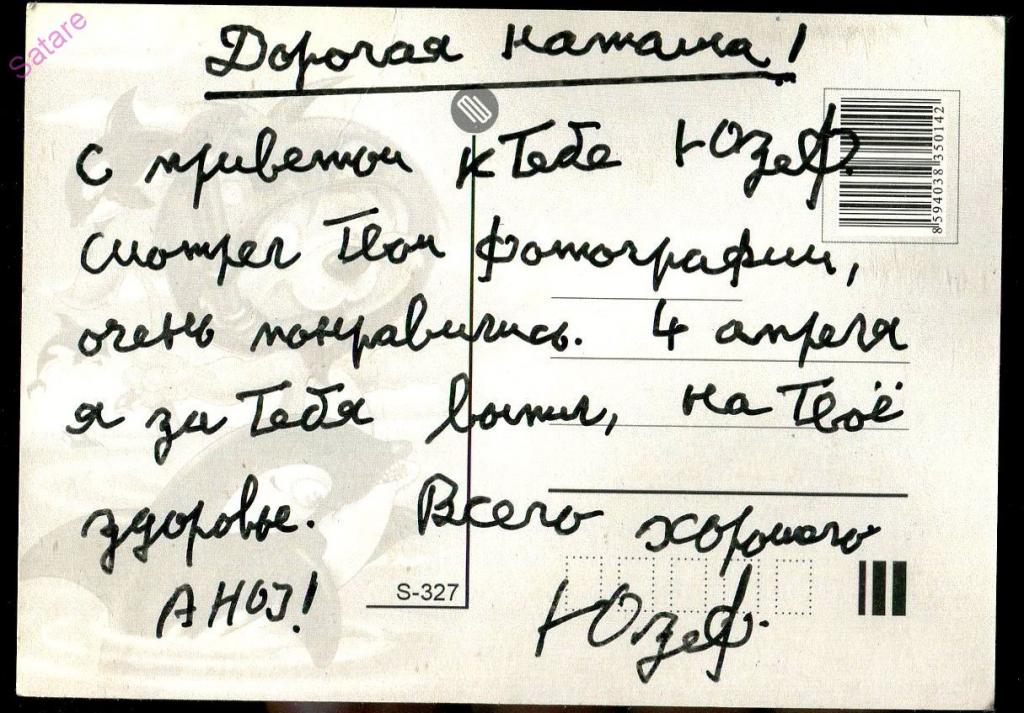 Satare
Дорогая Наташа!
С приветом к Тебе Юзеф.
Смотрел Твои фотографии,
очень понравились. 4 апреля
я за Тебя выпил, на Твоё
здоровье. Всего хорошего
АНОЈ! Юзеф.
S-327
8594038350142